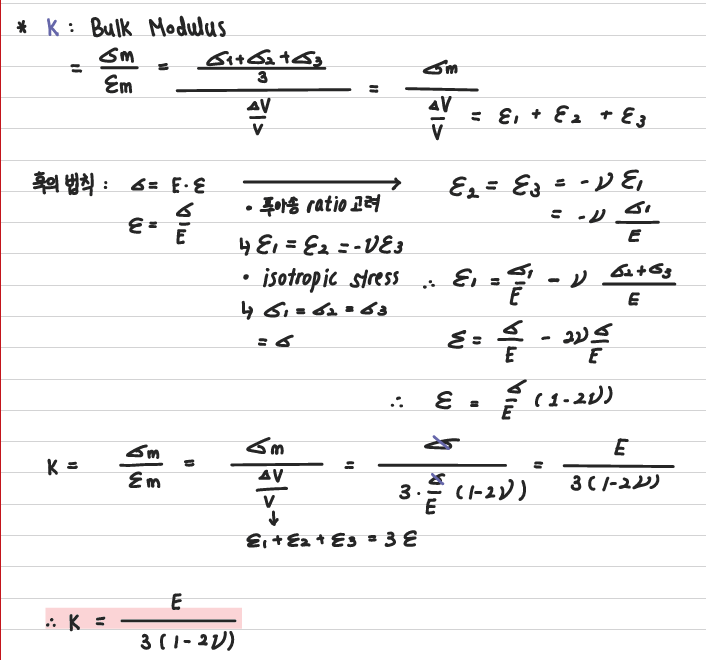 * K : Bulk Modulus
= σm/εm = ((σ1+σ2+σ3)/3)/(ΔV/V) = σm/(ΔV/V) = ε1 + ε2 + ε3
훅의 법칙 : σ = E·ε ⟶ ε2 = ε3 = -ν ε1
• 푸아송 ratio 고려 = -ν σ1/E
ε = σ/E
↳ ε1 = ε2 = -νε3
• isotropic stress ∴ ε1 = σ1/E - ν (σ2+σ3)/E
↳ σ1 = σ2 = σ3
= σ ε = σ/E - 2ν σ/E
∴ ε = σ/E (1-2ν)
K = σm/εm = σm/(ΔV/V) = σ/(3·σ/E (1-2ν)) = E/(3(1-2ν))
↓
ε1+ε2+ε3 = 3ε
∴ K = E/(3(1-2ν))